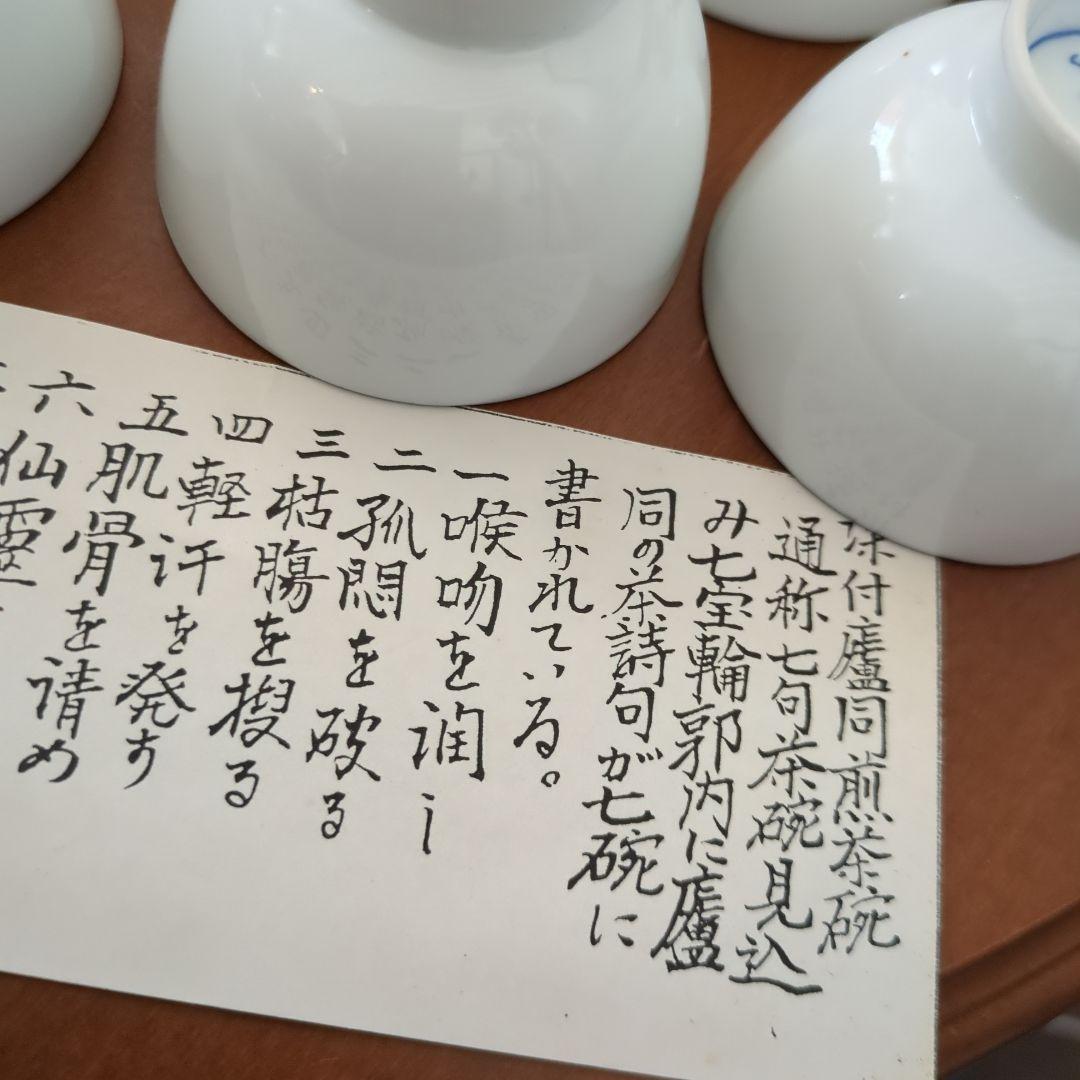 付廬同煎茶碗
通称七句茶碗見込
み七宝輪郭内に廬
同の茶詩句が七碗に
書かれている。
一喉吻を潤し
二孤悶を破る
三枯腸を捜る
四軽汗を発す
五肌骨を請め
六仙靈